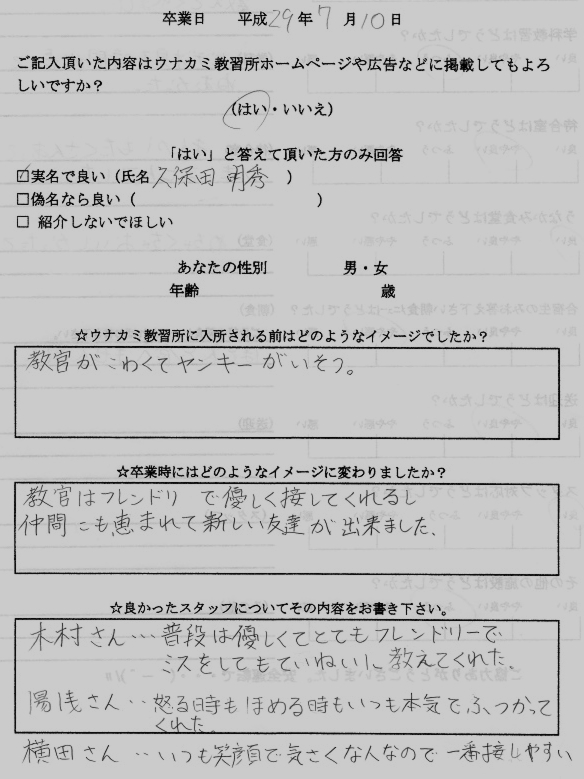 卒業日 平成29年7月10日
ご記入頂いた内容はウナカミ教習所ホームページや広告などに掲載してもよろ
しいですか?
(はい・いいえ)
「はい」と答えて頂いた方のみ回答
☑実名で良い（氏名 久保田 明秀 ）
□偽名なら良い（ ）
□ 紹介しないでほしい
あなたの性別 男・女
年齢 歳
☆ウナカミ教習所に入所される前はどのようなイメージでしたか?
教官がこわくてヤンキーがいそう。
☆卒業時にはどのようなイメージに変わりましたか?
教官はフレンドリーで優しく接してくれるし
仲間にも恵まれて新しい友達が出来ました、
☆良かったスタッフについてその内容をお書き下さい。
木村さん…普段は優しくてとてもフレンドリーで
ミスをしてもていねいに教えてくれた、
湯浅さん…怒る時もほめる時もいつも本気でぶつかって
くれた。
横田さん…いつも笑顔で気さくな人なので一番接しやすい